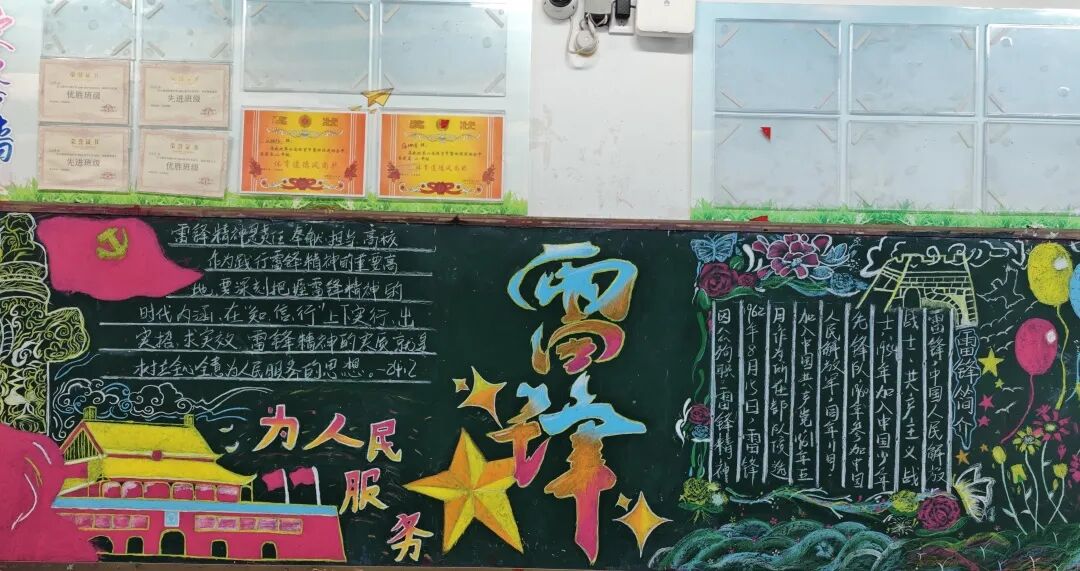 荣誉证书
优胜班级
荣誉证书
先进班级
荣誉证书
先进班级
荣誉证书
优胜班级
体育道德风尚奖
体育道德风尚奖
雷锋精神是责任 奉献 担当 高核
作为践行雷锋精神的重要高
地，要深刻把握雷锋精神的
时代内涵，在“知、信、行”上下实行、出
实招、求实效。雷锋精神的实质就是
树立全心全意为人民服务的思想。
为人民服务
雷锋
雷锋简介
雷锋中国人民解放
战士，共产主义战
士，1954年加入中国少年
先锋队，1960年参加中国
人民解放军，同年11月
加入中国共产党。1961年
月，作为所在部队候选
1962年8月15日，雷锋
因公殉职，雷锋精神